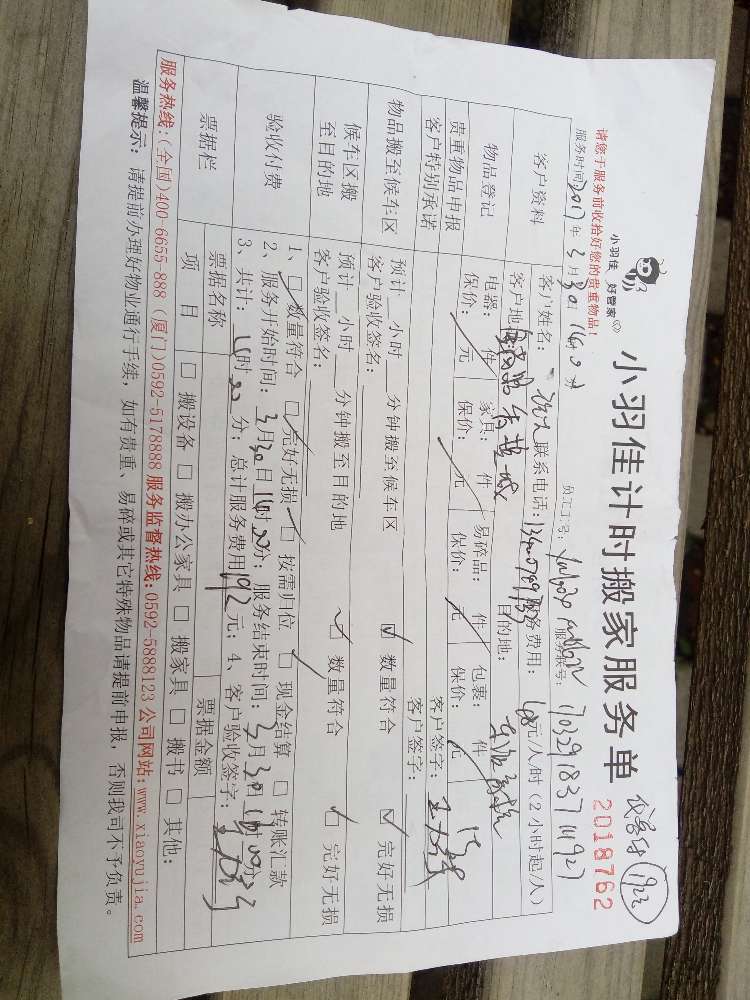 小羽佳 好管家
小羽佳计时搬家服务单
2018762
192
请您于服务前收拾好您的贵重物品！
服务时间：2017年3月30日14时0分 员工工号： 服务账号：
客户资料
客户姓名： 联系电话： 服务费用： 元/人/时（2小时起/人）
客户地 目的地：
物品登记
电器： 件 家具： 件 易碎品： 件 包裹： 件
保价： 元 保价： 元 保价： 元 保价： 元
贵重物品申报 客户签字：
客户特别承诺 客户签字：
物品搬至候车区
预计 小时 分钟搬至候车区 数量符合 完好无损
客户验收签名：
候车区搬至目的地
预计 小时 分钟搬至目的地 数量符合 完好无损
客户验收签名：
验收付费
1、 数量符合 完好无损 按需归位 现金结算 转账汇款
2、服务开始时间：3月30日14时00分；服务结束时间：3月30日 时00分
3、共计： 时 分；总计服务费用192元；4、客户验收签字：
票据栏
票据名称 票据金额
项 目 搬设备 搬办公家具 搬家具 搬书 其他：
服务热线：(全国)400-6655-888 (厦门)0592-5178888 服务监督热线：0592-5888123 公司网站：www.xiaoyujia.com
温馨提示：请提前办理好物业通行手续，如有贵重、易碎或其它特殊物品请提前申报，否则我司不予负责。